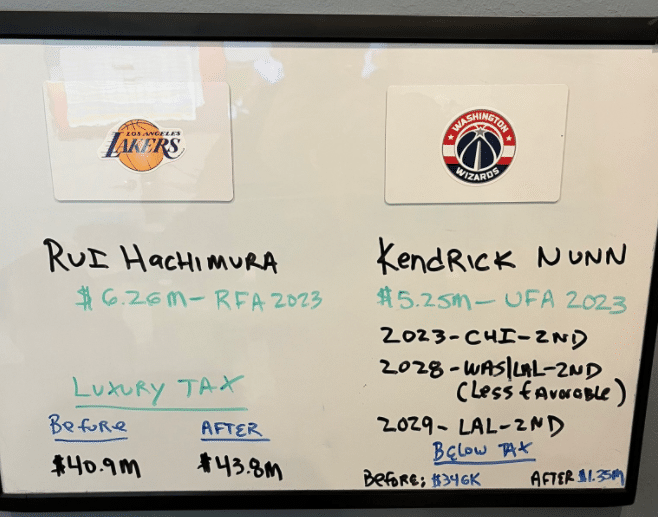 LOS ANGELES
LAKERS
RUI HACHIMURA
$6.26M - RFA 2023
LUXURY TAX
Before
AFTER
$40.9M
$43.8M
WASHINGTON
WIZARDS
KENDRICK NUNN
$5.25M - UFA 2023
2023 - CHI - 2ND
2028 - WAS|LAL - 2ND
(Less Favorable)
2029 - LAL - 2ND
Below TAX
Before: $346K
AFTER $1.35M